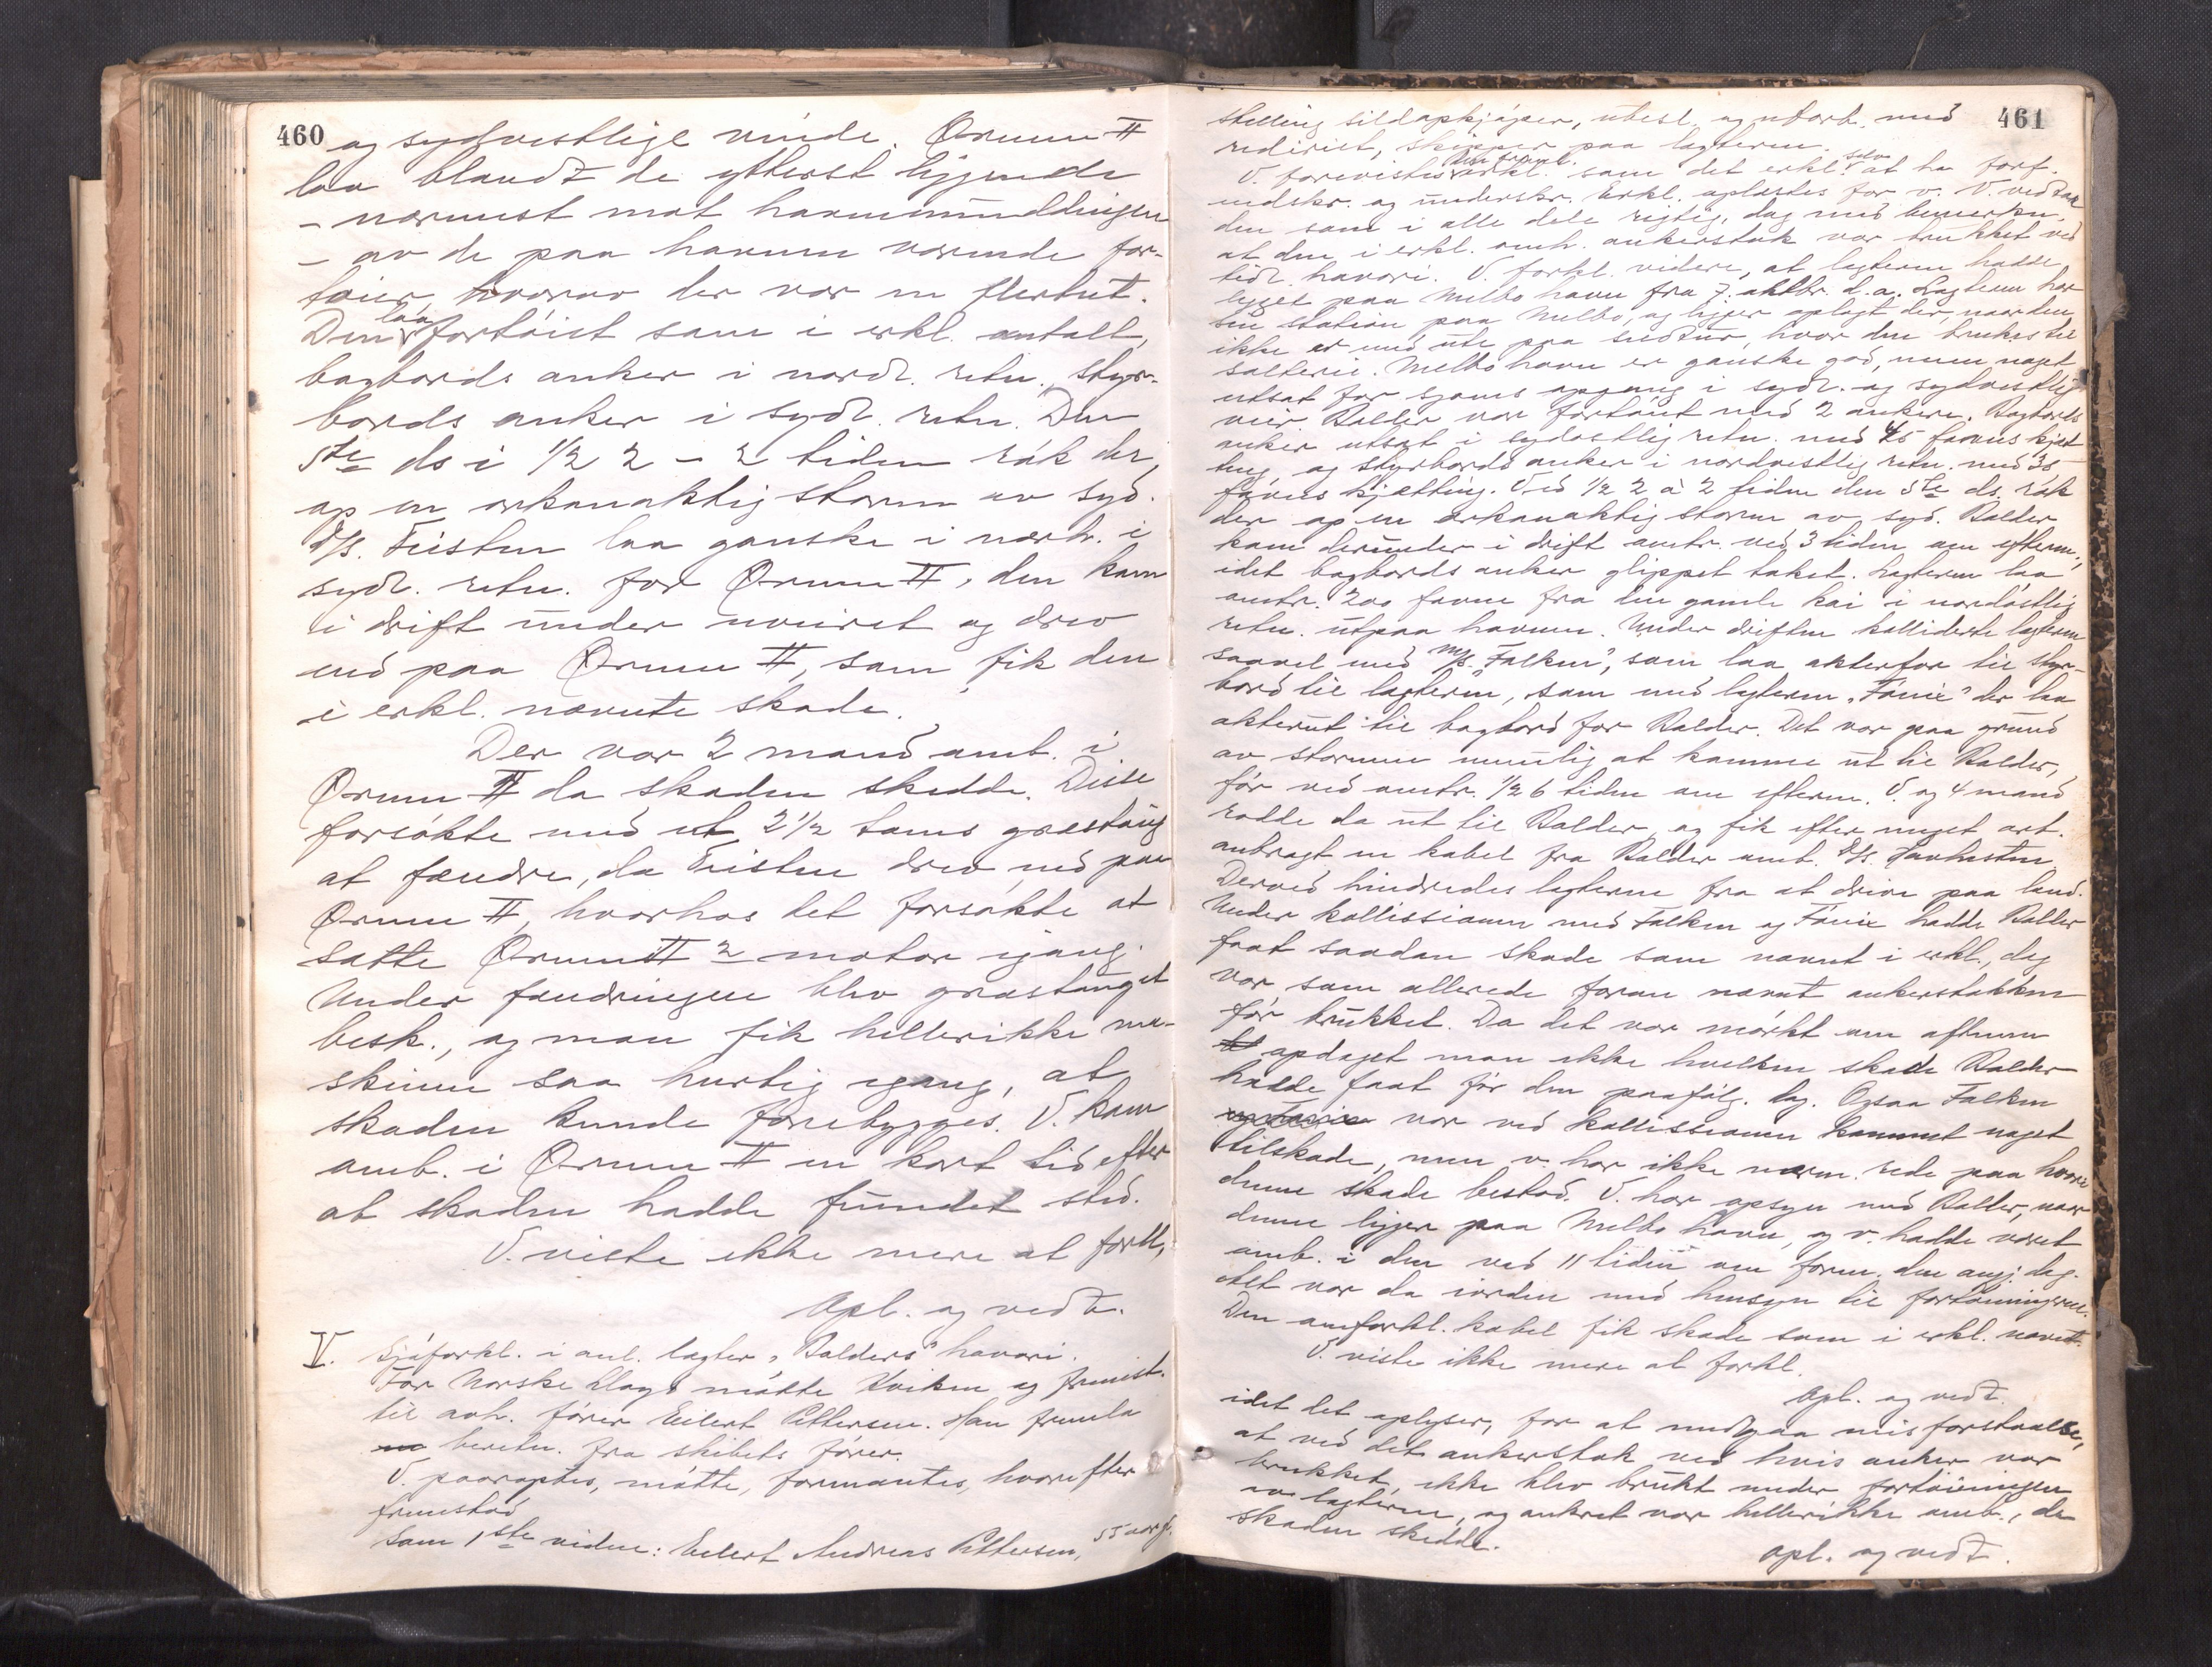 460
og sydvestlige vinde. Ørnun II
laa blandt de ytterst liggende
- nærmest mot havnemunddingen
- av de paa havnen værende far-
tøier, hvorav der var en flertut.
Den laa fortøiet som i erkl. antalt,
bagbords anker i nordl. retn., styr-
bords anker i sydl. retn. Den
5te ds i 1/2 2 - 2 tiden rök der
op en orkanaktig storm av syd.
D/S. Feisten laa ganske i nærh. i
sydl. retn. for Ørnun II, den kom
i drift under uveiret og drev
ned paa Ørnun II, som fik den
i erkl. nævnte skade.
Der var 2 mand omb. i
Ørnun II da skaden skedde. Disse
forsökte med et 2 1/2 toms græstaug
at fændre, da Feisten drev ned paa
Ørnun II, hvorhos det forsökte at
sætte Ørnun II's motor igang.
Under fændringen blev græstauget
besk., og man fik hellerikke ma-
skinen saa hurtig igang, at
skaden kunde forebygges. V. kom
omb. i Ørnun II en kort tid efter
at skaden hadde fundet sted.
V. viste ikke mere at forkl.
Opl. og vedt.
V. Sjøforkl. i anl. lagter "Balders" havari.
For Norske Lloyd mötte Kviken og fremst.
til avh. förer Eilert Pettersen. Han fremla
beretn. fra skibets förer.
V. paaroptes, mötte, formantes, hvorefter
fremstod
Som 1ste vidne: Eilert Andreas Pettersen, 55 aar gl.
461
stilling sildopkjøper, ubesl. og uforb. med
rederiet, skipper paa lagteren.
V. forevistes den freml. erkl. som det erkl. selv at ha forf.
nedskr. og underskr. Erkl. oplæstes for v. V. vedtok
den som i alle dele rigtig, dog med bemerkn.
at den i erkl. omh. ankerstok var brukket ved
tidl. havari. V. forkl. videre, at lagteren hadde
ligget paa Melbo havn fra 7. oktbr. d.a. Lagteren har
sin station paa Melbo, og ligger oplagt der, naar den
ikke er med ute paa sildtur, hvor den brukes til
salteri. Melbo havn er ganske god, men noget
utsat for sjøens opgang i sydl. og sydvestlig
veir. Balder var fortöiet med 2 ankere. Bagbords
anker utsat i sydostlig retn. med 45 favnes kjæt-
ting, og styrbords anker i nordvestlig retn. med 35
favnes kjætting. Ved 1/2 2 à 2 tiden den 5te ds. rök
der op en orkanaktig storm av syd. Balder
kom derunder i drift omtr. ved 3 tiden om efterm.,
idet bagbords anker glippet taket. Lagteren laa
omtr. 200 favne fra den gamle kai i nordöstlig
retn. utpaa havnen. Under driften kolliderte lagteren
saavel med M/S. "Falken", som laa akterfor til styr-
bord til lagteren, som med lagteren "Fönix" der laa
akterut til bagbord for Balder. Det var paa grund
av stormen umulig at komme ut til Balder,
för ved omtr. 1/2 6 tiden om efterm. V. og 4 mand
rodde da ut til Balder og fik efter meget arb.
anbragt en kabel fra Balder omb. D/S. Havhesten.
Derved hindredes lagteren fra at drive paa land.
Under kollissionen med Falken og Fönix hadde Balder
faat saadan skade som nævnt i erkl., dog
var som allerede foran nævnt ankerstokken
för brukket. Da det var mörkt om aftenen
opdaget man ikke hvilken skade Balder
hadde faat för den paafölg. dag. Ogsaa Falken
var ved kollissionen kommet noget
tilskade, men v. har ikke nærm. rede paa hvori
denne skade bestod. V. har opsyn med Balder, naar
denne ligger paa Melbo havn, og v. hadde været
omb. i den ved 11 tiden om form. den angj. dag.
Alt var da iorden med hensyn til fortöiningerne.
Den omforkl. kabel fik skade som i erkl. nævnt.
V. viste ikke mere at forkl.
Opl. og vedt.
idet det oplyser, for at undgaa misforstaaelse,
at ved det ankerstok ved hvis anker var
brukket, ikke blev brukt under fortöiningen
av lagteren, og ankret var hellerikke omb., da
skaden skedde.
Opl. og vedt.